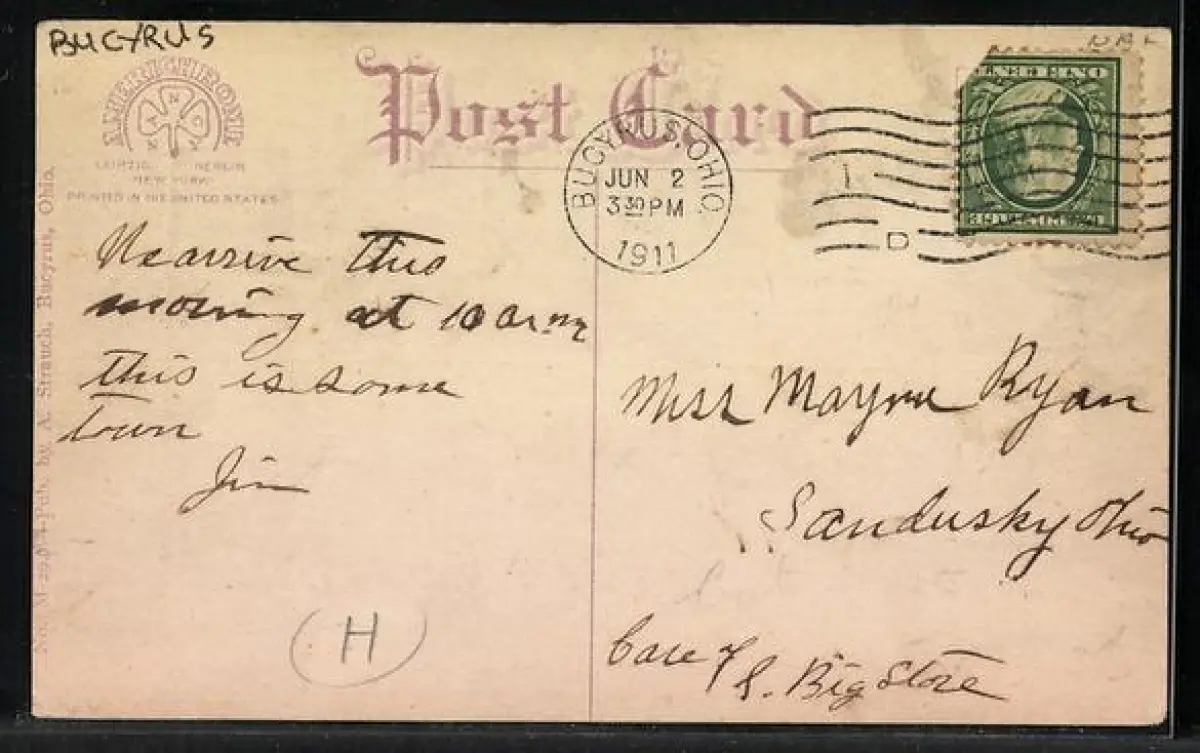 BUCYRUS
AMERICHROME
LEIPZIG BERLIN
NEW YORK
PRINTED IN THE UNITED STATES
Post Card
BUCYRUS, OHIO
JUN 2
3 30 PM
1911
1
D
We arrive this
morning at 10 a m
this is some
town
Jim
H
Miss Mayme Ryan
Sandusky Ohio
Care of
Big Store
Pub. by A. Strauch, Bucyrus, Ohio.